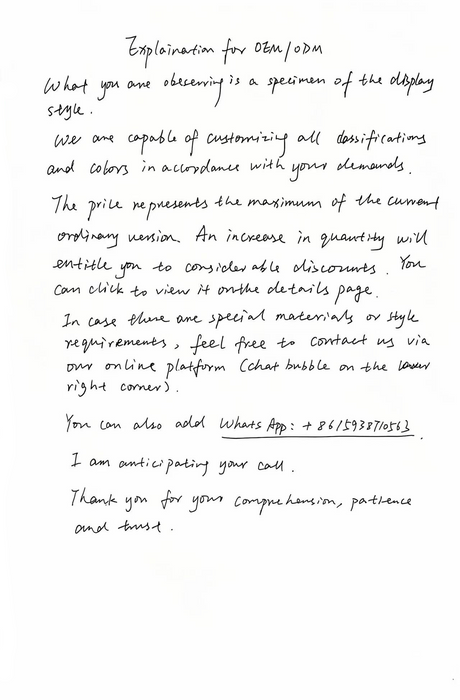 Explaination for OEM/ODM
What you are obeserving is a specimen of the display
style.
We are capable of customizing all classifications
and colors in accordance with your demands.
The price represents the maximum of the current
ordinary version. An increase in quantity will
entitle you to considerable discounts. You
can click to view it on the details page.
In case there are special materials or style
requirements, feel free to contact us via
our online platform (chat bubble on the lower
right corner).
You can also add WhatsApp: +8615938710563.
I am anticipating your call.
Thank you for your comprehension, patience
and trust.